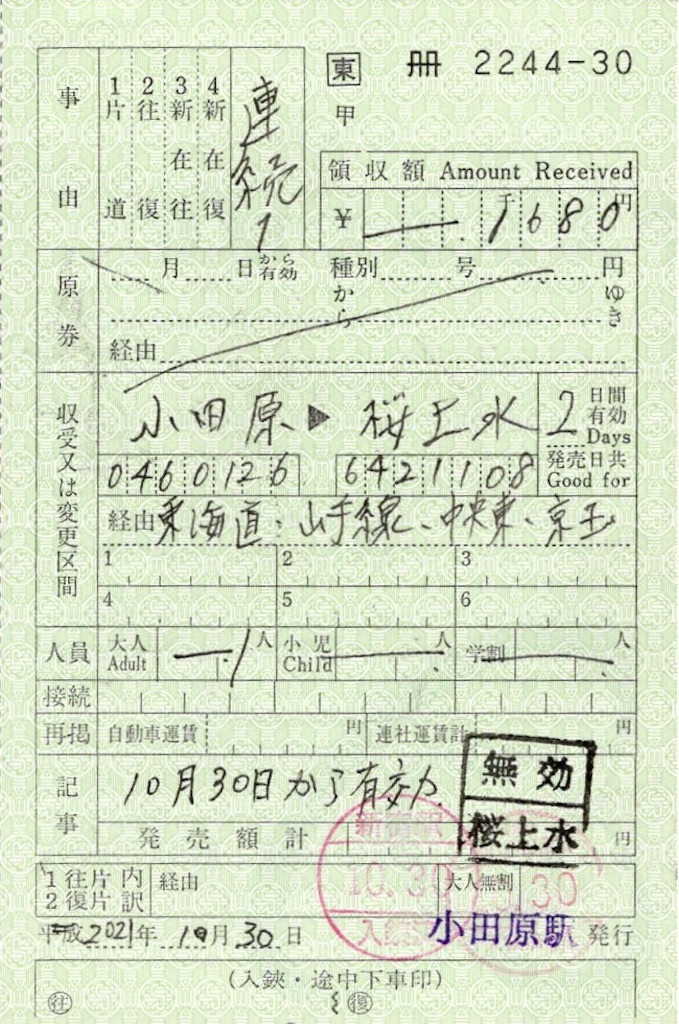 東 冊 2244-30
甲
事由
1片道
2往復
3新在往
4新在復
連続1
領収額 Amount Received
¥ 一.1680 千 円
原券
月 日から有効 種別 号 円
から ゆき
経由
収受又は変更区間
小田原 ▶ 桜上水
2 日間有効 Days
0460126 6421108
発売日共 Good for
経由 東海道、山手線、中央東、京王
1 2 3
4 5 6
人員 大人 Adult 1人 小児 Child 人 学割 人
接続
再掲 自動車運賃 円 連社運賃計 円
記事
10月30日から有効
無効
桜上水
発売額計 円
新宿駅
10.30
入鋏
.30
1往片内 経由 大人無割
2復片訳
平成2021年 10月30日 小田原駅 発行
(入鋏・途中下車印)
往 復